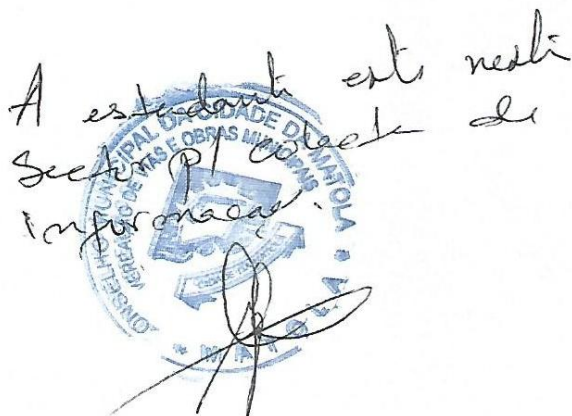 A estudante está neste
Sector p/ colecta de
informação.
CONSELHO MUNICIPAL DA CIDADE DA MATOLA
VEREAÇÃO DE VIAS E OBRAS MUNICIPAIS
* MATOLA *